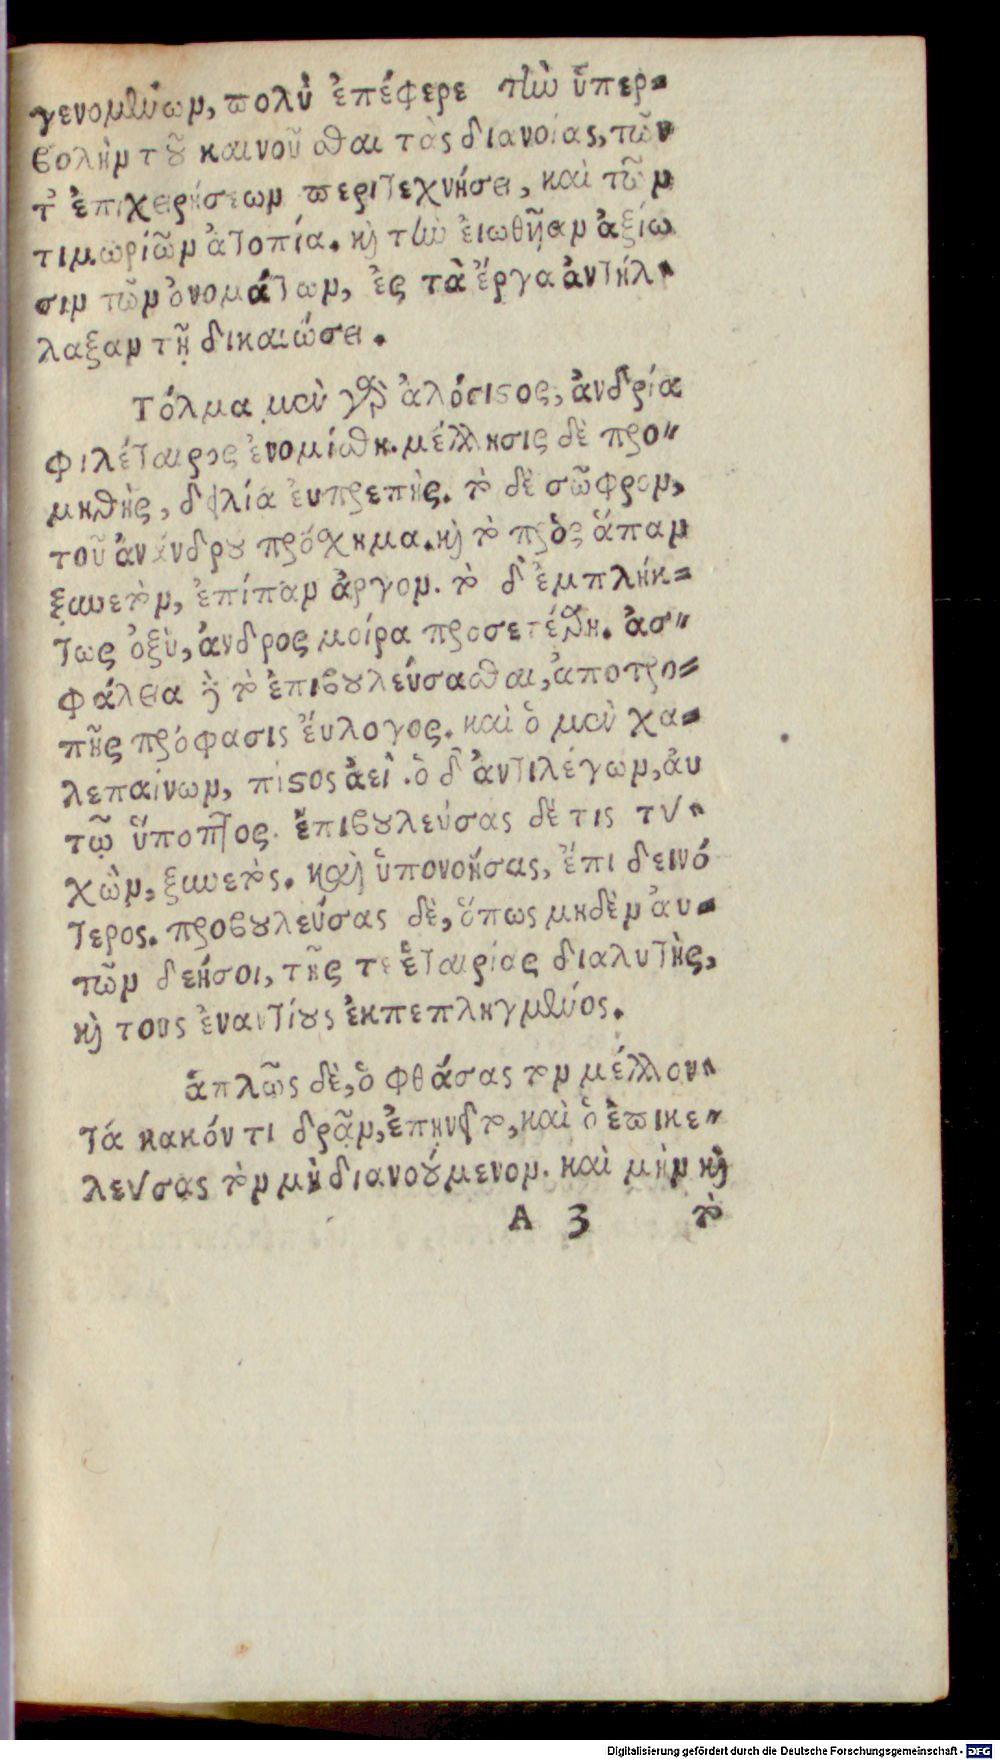 γενομένων, πολὺ ἐπέφερε τὴν ὕπερ-
βολὴν τοῦ καινοῦσθαι τὰς διανοίας, τῶν
τ᾽ ἐπιχειρήσεων περιτεχνήσει, καὶ τῶν
τιμωριῶν ἀτοπία. καὶ τὴν ἐιωθῆαν ἀξίω
σιν τῶν ὀνομάτων, ἐς τὰ ἔργα ἀντήλ-
λαξαν τῇ δικαιώσει.
Τόλμα μὲν γὰρ ἀλόγιστος, ἀνδρία
φιλέταιρος ἐνομίσθη. μέλλησις δὲ προ-
μηθὴς, δειλία ἐυπρεπὴς. τὸ δὲ σῶφρον,
τοῦ ἀνάνδρου πρόσχημα. καὶ τὸ πρὸς ἅπαν
ξυνετὸν, ἐπίπαν ἄργον. τὸ δ᾽ ἐμπλήκ-
τως ὀξὺ, ἀνδρος μοίρα προσετέθη. ἀσ-
φάλεια δὲ τὸ ἐπιβουλεύσασθαι, ἀποτρο-
πῆς πρόφασις ἔυλογος. καὶ ὁ μὲν χα-
λεπαίνων, πιστος ἀεὶ. ὁ δ᾽ ἀντιλέγων, ἀυ
τῷ ὕποπτος. ἐπιβουλεύσας δέ τις τυ-
χὼν, ξυνετὸς. καὶ ὑπονοήσας, ἔτι δεινό
τερος. προβουλεύσας δὲ, ὅπως μηδὲν ἀυ-
τῶν δεήσοι, τῆς τε ἑταιρίας διαλυτὴς,
καὶ τους ἐναντίους ἐκπεπληγμένος.
ἁπλῶς δὲ, ὁ φθάσας τὸν μέλλον-
τά κακόν τι δρᾷν, ἐπῃνεῖτο, καὶ ὁ ἐπικε-
λεύσας τὸν μὴ διανούμενον. καὶ μὴν καὶ
A 3 τὸ
Digitalisierung gefördert durch die Deutsche Forschungsgemeinschaft - DFG